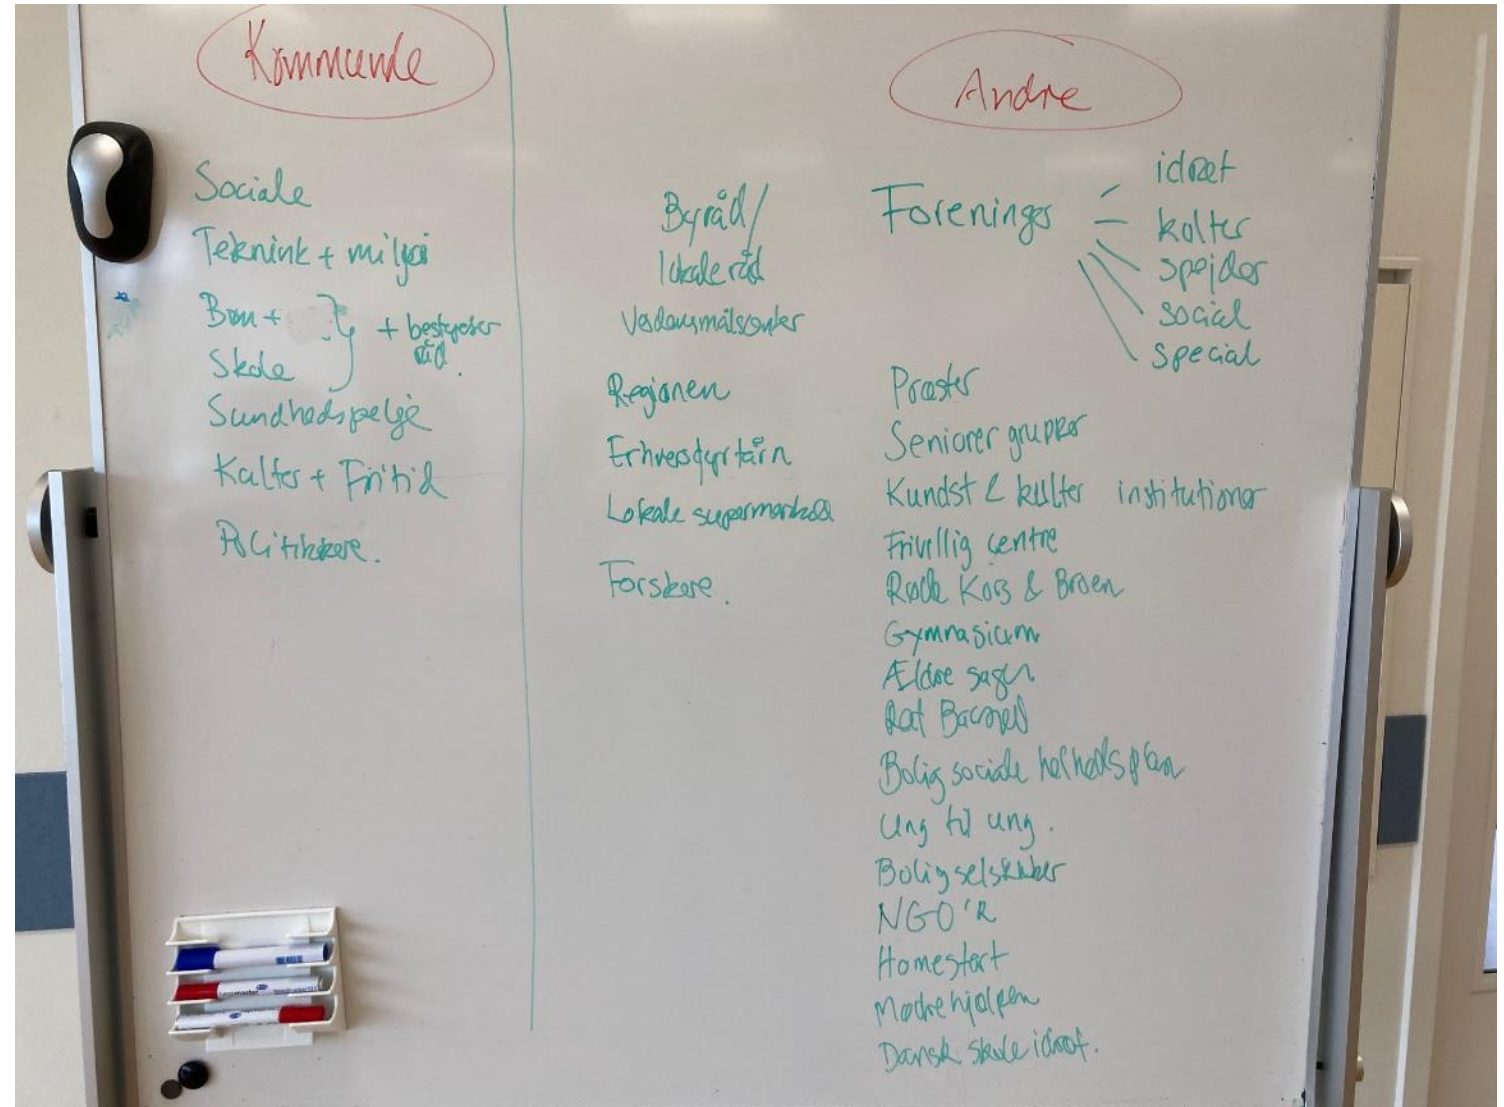 Kommunde
Sociale
Teknink + miljø
Børn +
Skole
+ bestyrelser
råd.
Sundhedspelje
Kulter + Fritid
Politikkere.
Byråd/
lokale råd
Verdensmålscenter
Regionen
Lokale supermarked
Forskere.
Andre
Foreninger
idræt
kulter
spejder
social
special
Præster
Seniorer grupper
Kundst & kulter institutioner
Frivillig centre
Røde Kors & Broen
Gymnasium
Ældre sagen
Bolig sociale helhedsplan
Ung til ung.
Boligselskaber
NGO'R
Homestart
Mødrehjælpen
Dansk skole idræt.